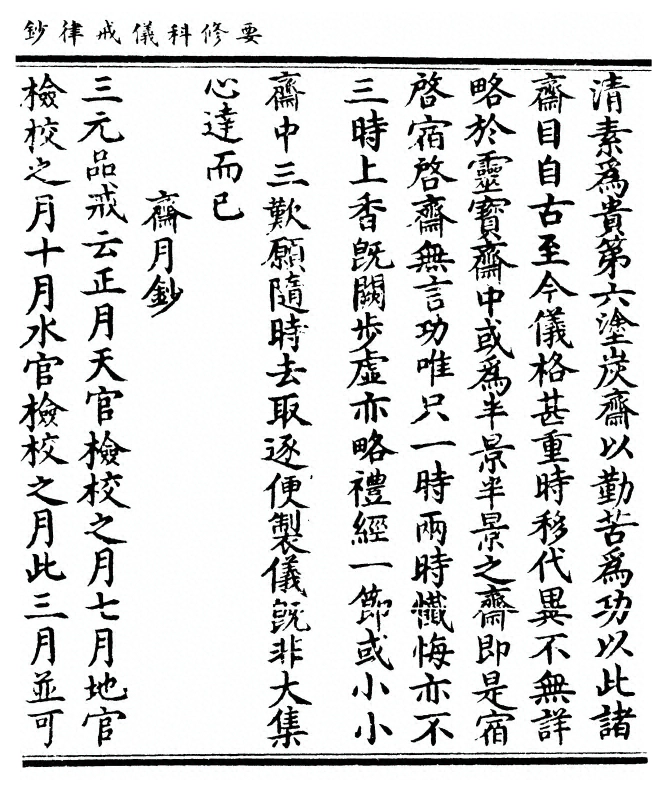 要修科儀戒律鈔
清素爲貴第六塗炭齋以勤苦爲功以此諸
齋目自古至今儀格甚重時移代異不無詳
略於靈寶齋中或爲半景半景之齋即是宿
啓宿啓齋無言功唯只一時兩時懺悔亦不
三時上香旣闕步虛亦略禮經一節或小小
齋中三歎願隨時去取逐便製儀旣非大集
心達而已
齋月鈔
三元品戒云正月天官檢校之月七月地官
檢校之月十月水官檢校之月此三月並可